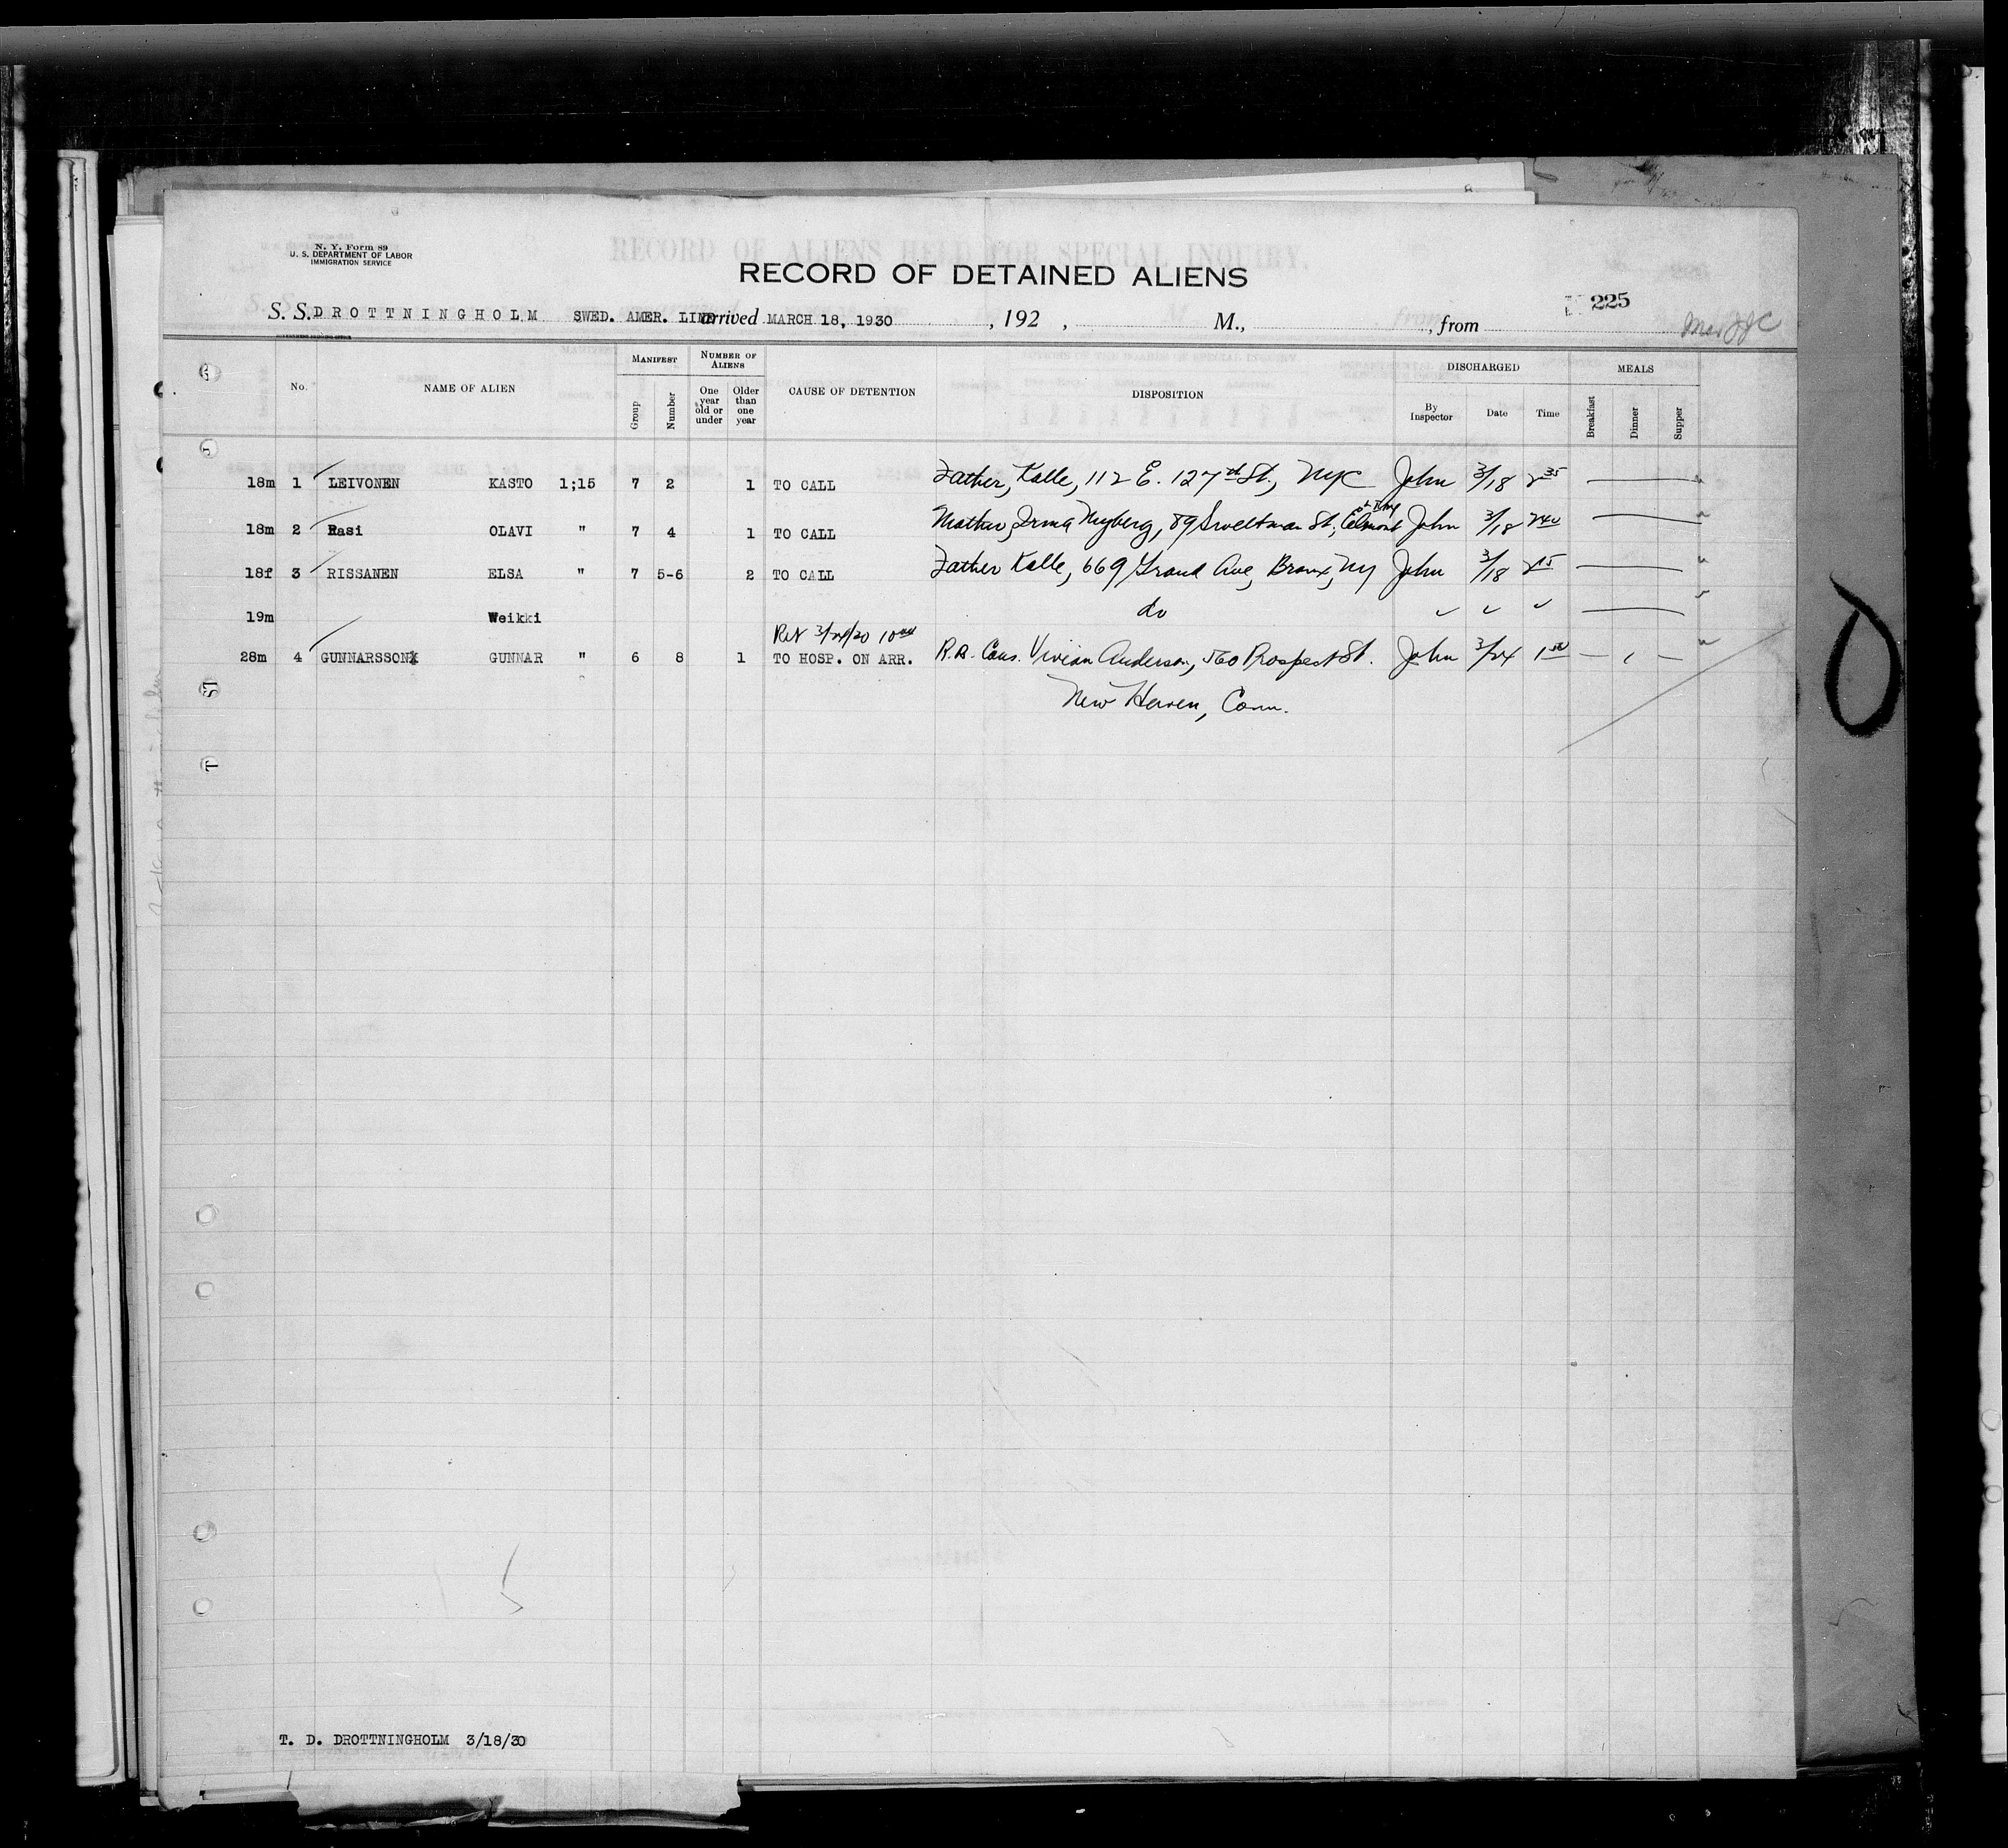 N. Y. Form 89
U. S. DEPARTMENT OF LABOR
IMMIGRATION SERVICE
RECORD OF ALIENS HELD FOR SPECIAL INQUIRY.
RECORD OF DETAINED ALIENS
225
S. S. DROTTNINGHOLM SWED. AMER. LINE arrived MARCH 18, 1930 , 192 , M., , from
No. NAME OF ALIEN MANIFEST NUMBER OF ALIENS CAUSE OF DETENTION DISPOSITION DISCHARGED MEALS
Group Number One year old or under Older than one year By Inspector Date Time Breakfast Dinner Supper
18m 1 LEIVONEN KASTO 1;15 7 2 1 TO CALL Father, Kalle, 112 E. 127th St., NYC John 3/18 2 35
18m 2 Rasi OLAVI " 7 4 1 TO CALL Mother, Irma Nyberg, 89 St., Elmont John 3/18 2 40
18f 3 RISSANEN ELSA " 7 5-6 2 TO CALL Father Kalle, 669 Grand Ave, Bronx, NY John 3/18 2 15
19m Weikki do
Ret 3/24/30 10
28m 4 GUNNARSSON GUNNAR " 6 8 1 TO HOSP. ON ARR. Cous. Vivian Anderson, 560 Prospect St. John 3/24 1 50
New Haven, Conn.
T. D. DROTTNINGHOLM 3/18/30